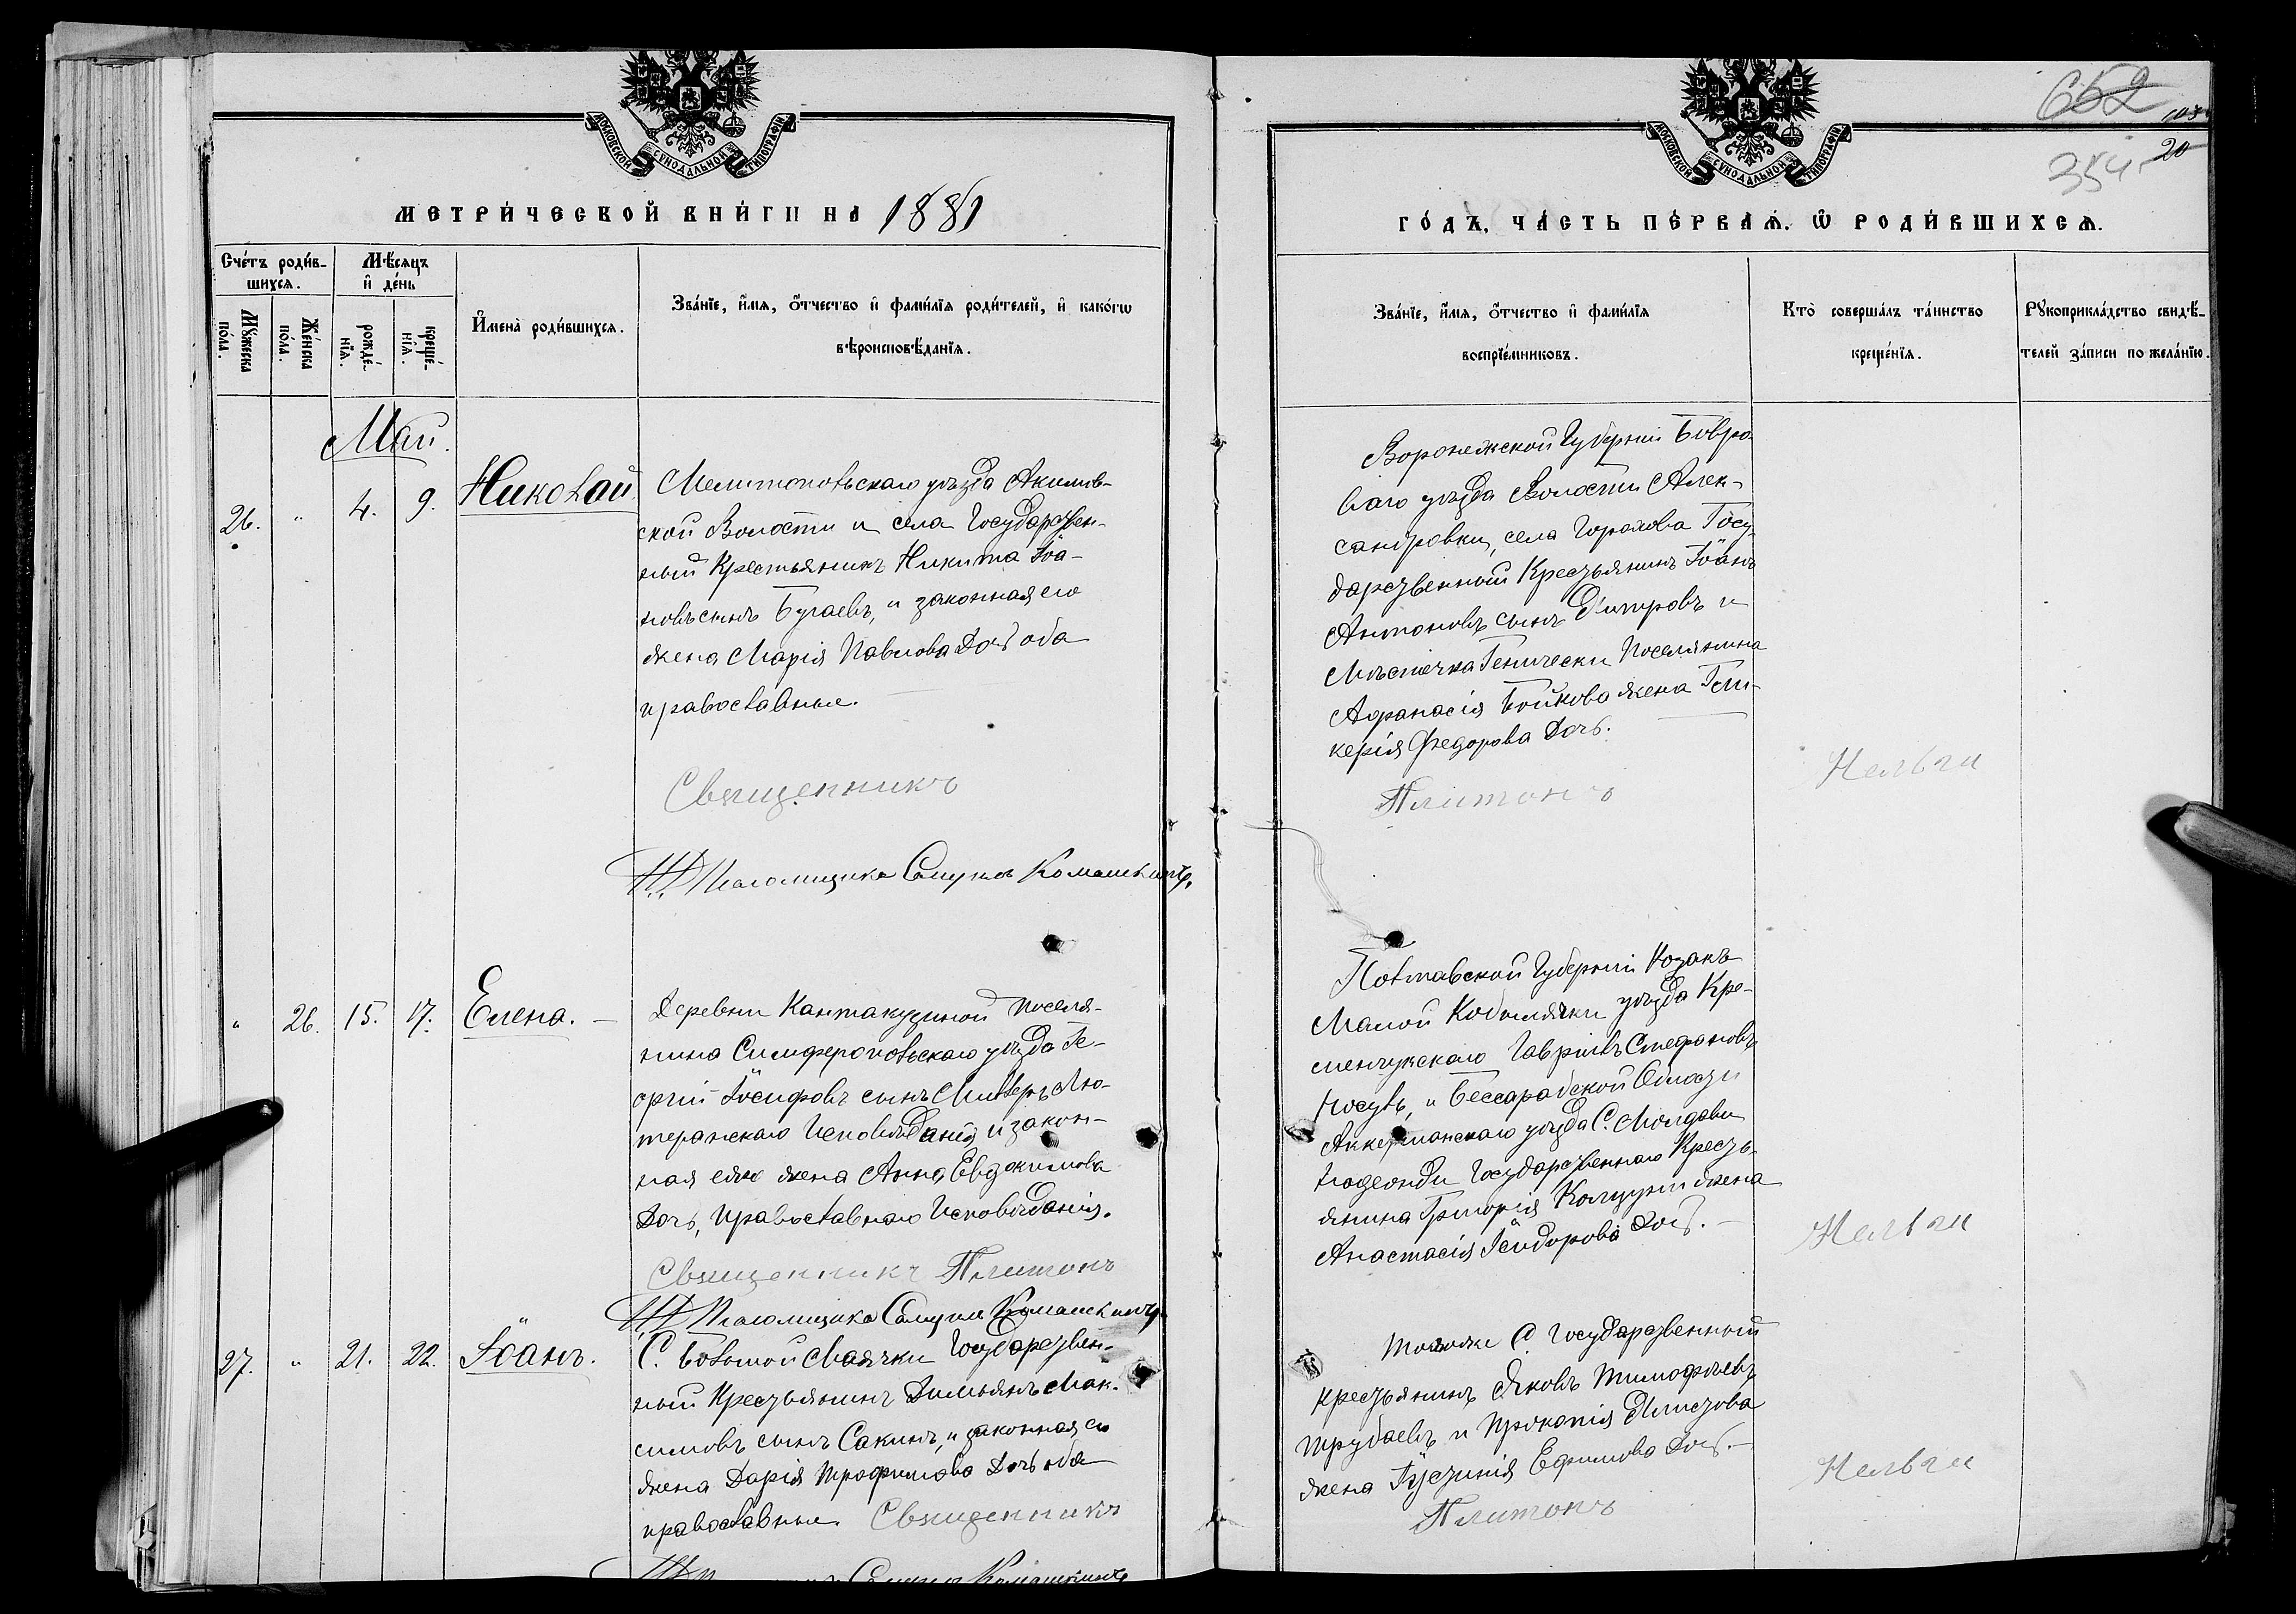 МОСКОВСКОЙ СУНОДАЛЬНОЙ ТИПОГРАФІИ
МЕТРИ́ЧЕСКОЙ КНИ́ГИ НА 1881
Сче́тъ роди́в-
шихся.
Мѣ́сяцъ
и҆ де́нь
Мꙋ́жеска
по́ла.
Же́нска
по́ла.
рожде́-
нїя.
креще́-
нїя.
И҆мена̀ роди́вшихся.
Зва́нїе, и҆́мя, ѻ҆́тчество и҆ фами́лїя роди́телей, и҆ како́гѡ
вѣроисповѣ́данїя.
Май.
26. " 4. 9. Николай
Мелитопольскаго уѣзда Акимов-
ской Волости и села Государствен-
ный Крестьянинъ Никита Іоа-
новъ сынъ Бугаевъ, и законная его
жена Марія Павлова дочь оба
православные.
Священникъ
Псаломщикъ
" 26. 15. 17. Елена.
Деревни Кантакузиной поселя-
нина Симферопольскаго уѣзда Ге-
оргій Іосифовъ сынъ Миллеръ Лю-
теранскаго Исповѣданія и закон-
ная его жена Анна Евдокимова
Дочь, Православнаго Исповѣданія.
Священникъ Платонъ
Псаломщикъ
27. " 21. 22. Іоанъ.
С. Большой Маячки Государствен-
ный Крестьянинъ Димьянъ Мак-
симовъ сынъ Сакинъ, и законная его
жена Дарія Трофимова Дочь оба
православные. Священникъ
МОСКОВСКОЙ СУНОДАЛЬНОЙ ТИПОГРАФІИ
652
20
354
ГО́ДЪ, ЧА́СТЬ ПЕ́РВАЯ. Ѡ РОДИ́ВШИХСЯ.
Зва́нїе, и҆́мя, ѻ҆́тчество и҆ фами́лїя
воспрїе́мниковъ.
Кто̀ соверша́лъ та́инство
креще́нїя.
Рꙋкоприкла́дство свидѣ́-
телей за́писи по жела́нїю.
Воронежской Губерніи Бобро-
ваго уѣзда Волости Алек-
сандровки, села Горохова Госу-
дарственный Крестьянинъ Іоанъ
Антоновъ сынъ Димтровъ и
Мѣстечка Генически Поселянина
Афанасія Бойкова жена Гли-
керія Федорова Дочь.
Платонъ
Нельги
Полтавской Губерніи Козакъ
Малой Кобылячки уѣзда Кре-
менчужскаго Гавріилъ Стефановъ
Носуль, и Бессарабской Области
Аккерманскаго уѣзда С. Молдави
Государственнаго Кресть-
янина Григорія жена
Анастасія Исидорова Дочь.
Нельги
Тогоже С. Государственный
крестьянинъ Яковъ Тимофѣевъ
Трубаевъ и Прокопія
жена Іустинія Ефимова Дочь.
Платонъ
Нельги